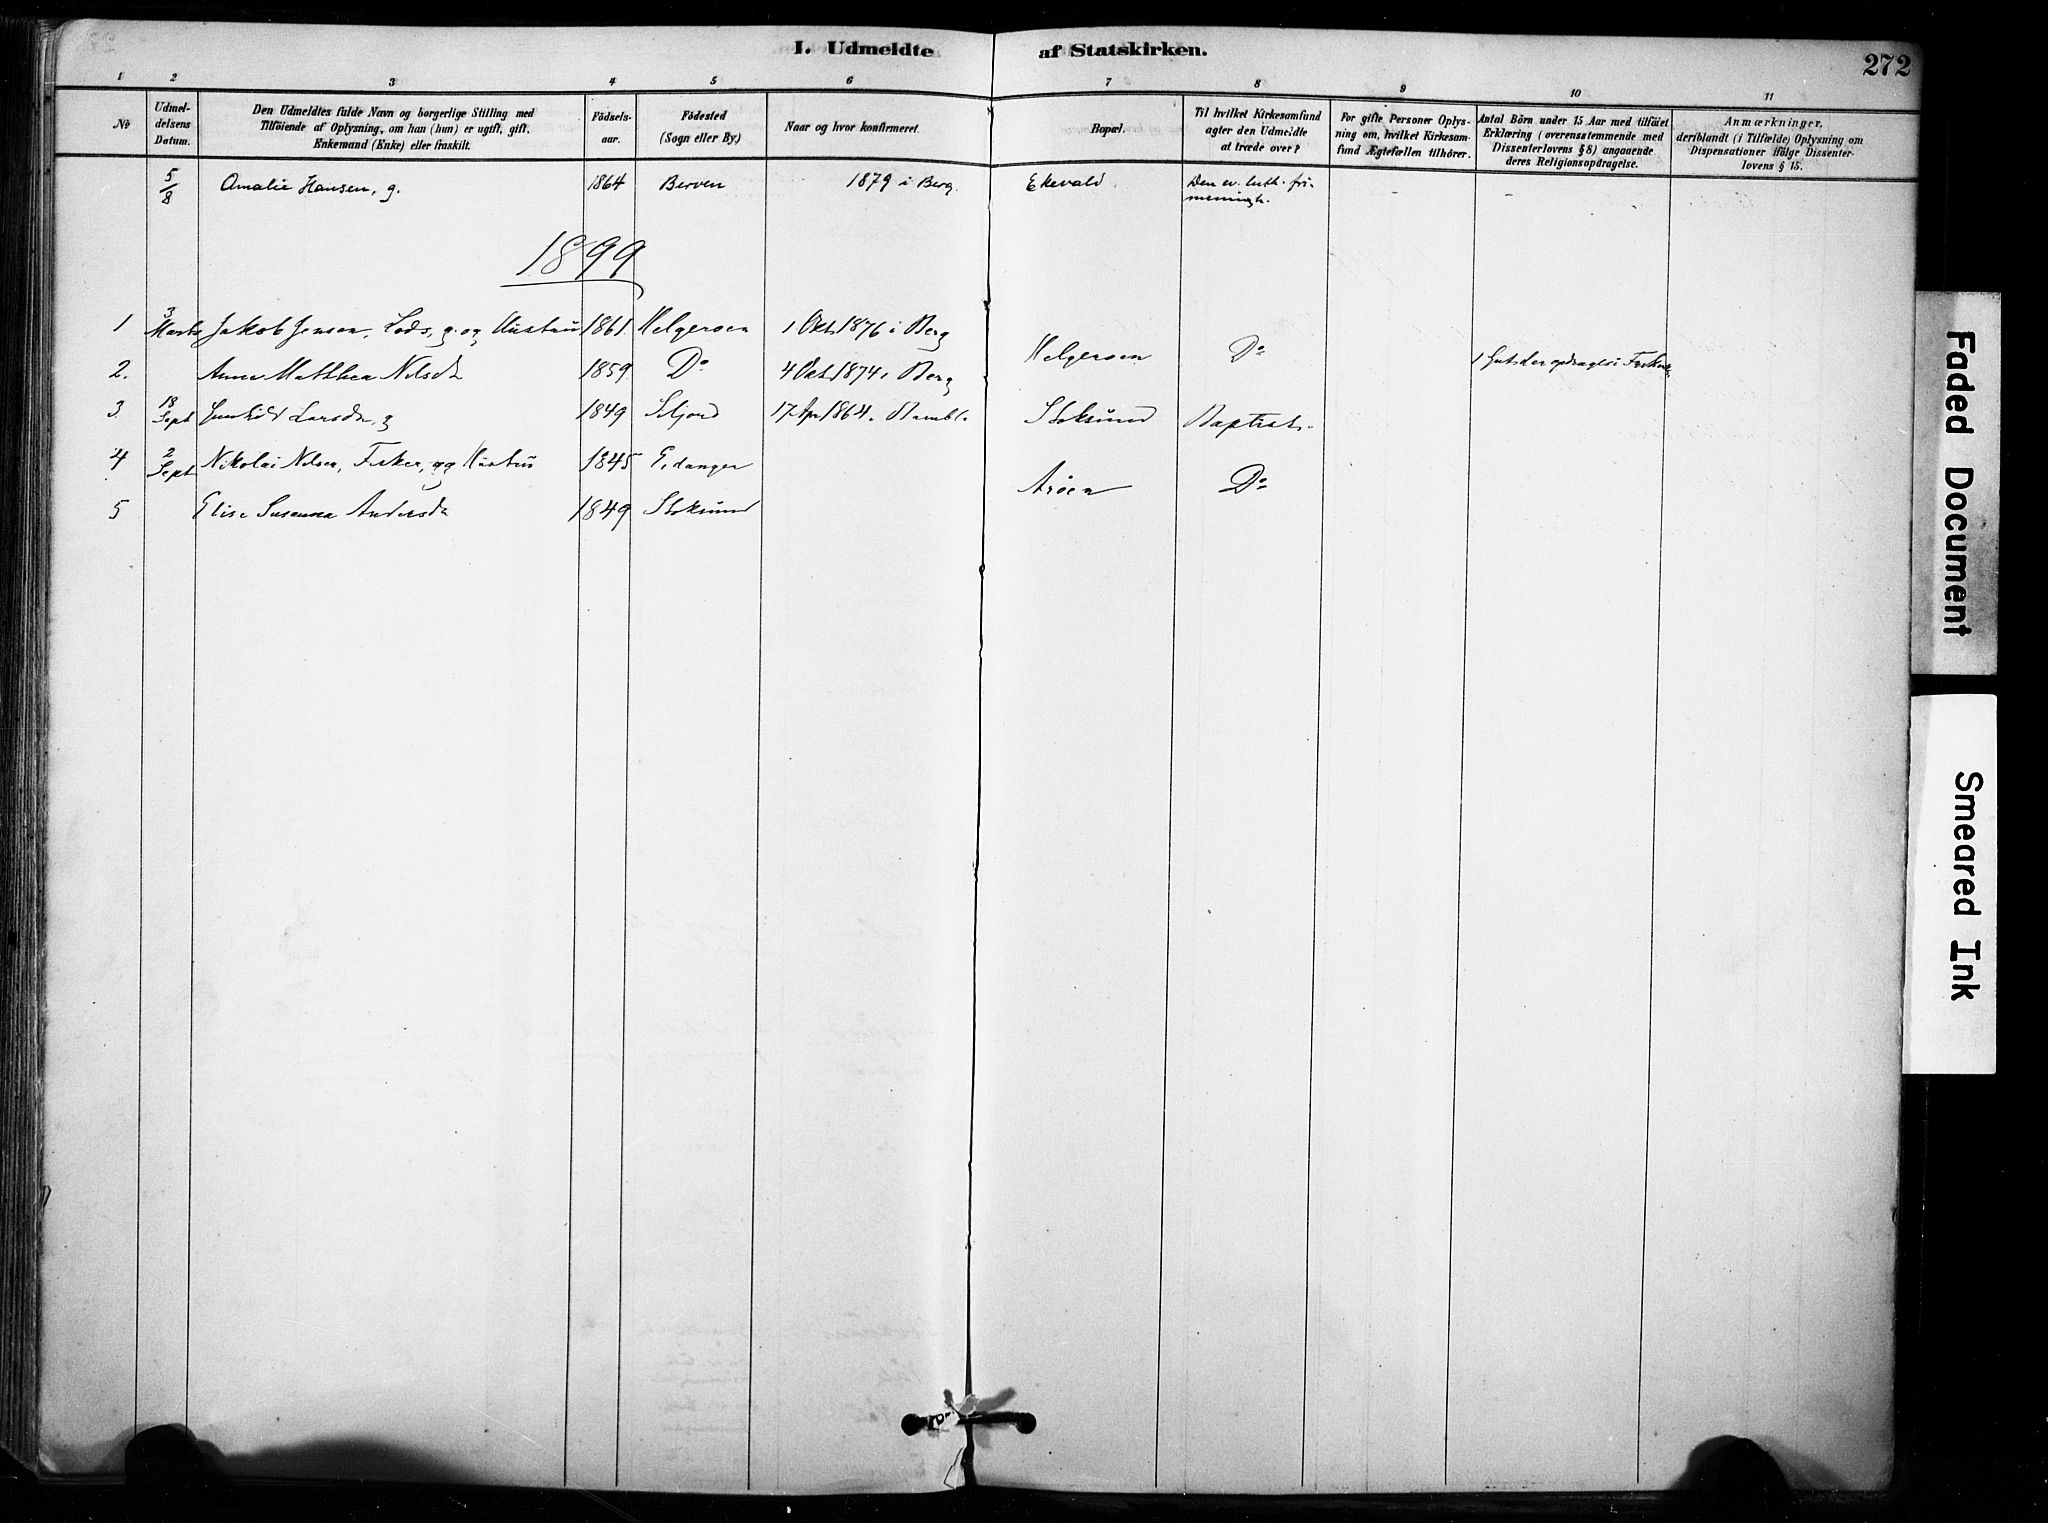 I. Udmeldte af Statskirken.
272
1 2 3 4 5 6 7 8 9 10 11
No
Udmel-
delsens
Datum.
Den Udmeldtes fulde Navn og borgerlige Stilling med
Tilføiende af Oplysning, om han (hun) er ugift, gift,
Enkemand (Enke) eller fraskilt.
Fødsels-
aar.
Fødested
(Sogn eller By.)
Naar og hvor konfirmeret.
Bopæl.
Til hvilket Kirkesamfund
agter den Udmeldte
at træde over?
For gifte Personer Oplys-
ning om, hvilket Kirkesam-
fund Ægtefællen tilhører.
Antal Börn under 15 Aar med tilføiet
Erklæring (overensstemmende med
Dissenterlovens § 8) angaaende
deres Religionsopdragelse.
Anmærkninger,
deriblandt (i Tilfælde) Oplysning om
Dispensationer ifölge Dissenter-
lovens § 15.
5/8 Amalie Hansen, g. 1864 Berven 1879 i Berg. Ekevald. Den ev. luth. fri-
menigh. - -
1899
1 3 Marts Jakob Jensen, Lods, g. og Hustru 1861 Helgeroen 1 Okt 1876 i Berg
Helgeroen Do
2. Anna Mathea Nilsdr 1859 Do 4 Okt 1874 i Berg
3 Sept Gunhild Larsdr, g 1849 Siljord 17 Apr 1864 i Bamble Stoksund Baptist.
4 2 Sept Nikolai Nilsen, Fisker, g og Hustru 1845 Eidanger
Arøen Do
5 Elise Susanna Andersdr 1849 Stoksund
Faded Document
Smeared Ink